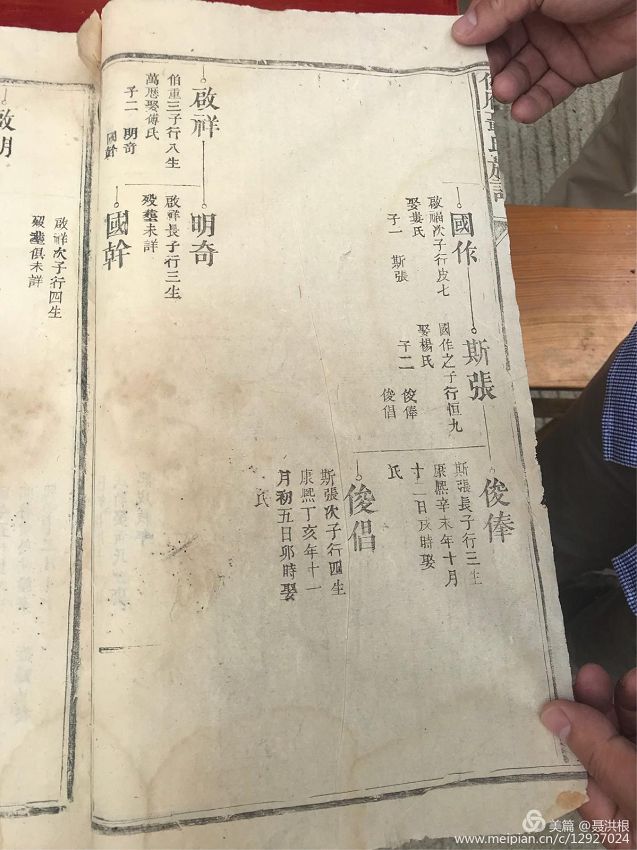 國作
啟祥次子行皮七
娶婁氏
子一 斯張
斯張
國作之子行恒九
娶楊氏
子二 俊俸
俊倡
俊俸
斯張長子行三生
康熙辛未年十月
十一日亥時娶
氏
俊倡
斯張次子行四生
康熙丁亥年十一
月初五日卯時娶
氏
啟祥
伯重三子行八生
萬曆娶傅氏
子二 明奇
國幹
明奇
啟祥長子行三生
歿塟未詳
國幹
啟明
啟祥次子行四生
歿塟俱未詳
美篇 @聂洪根
www.meipian.cn/c/12927024